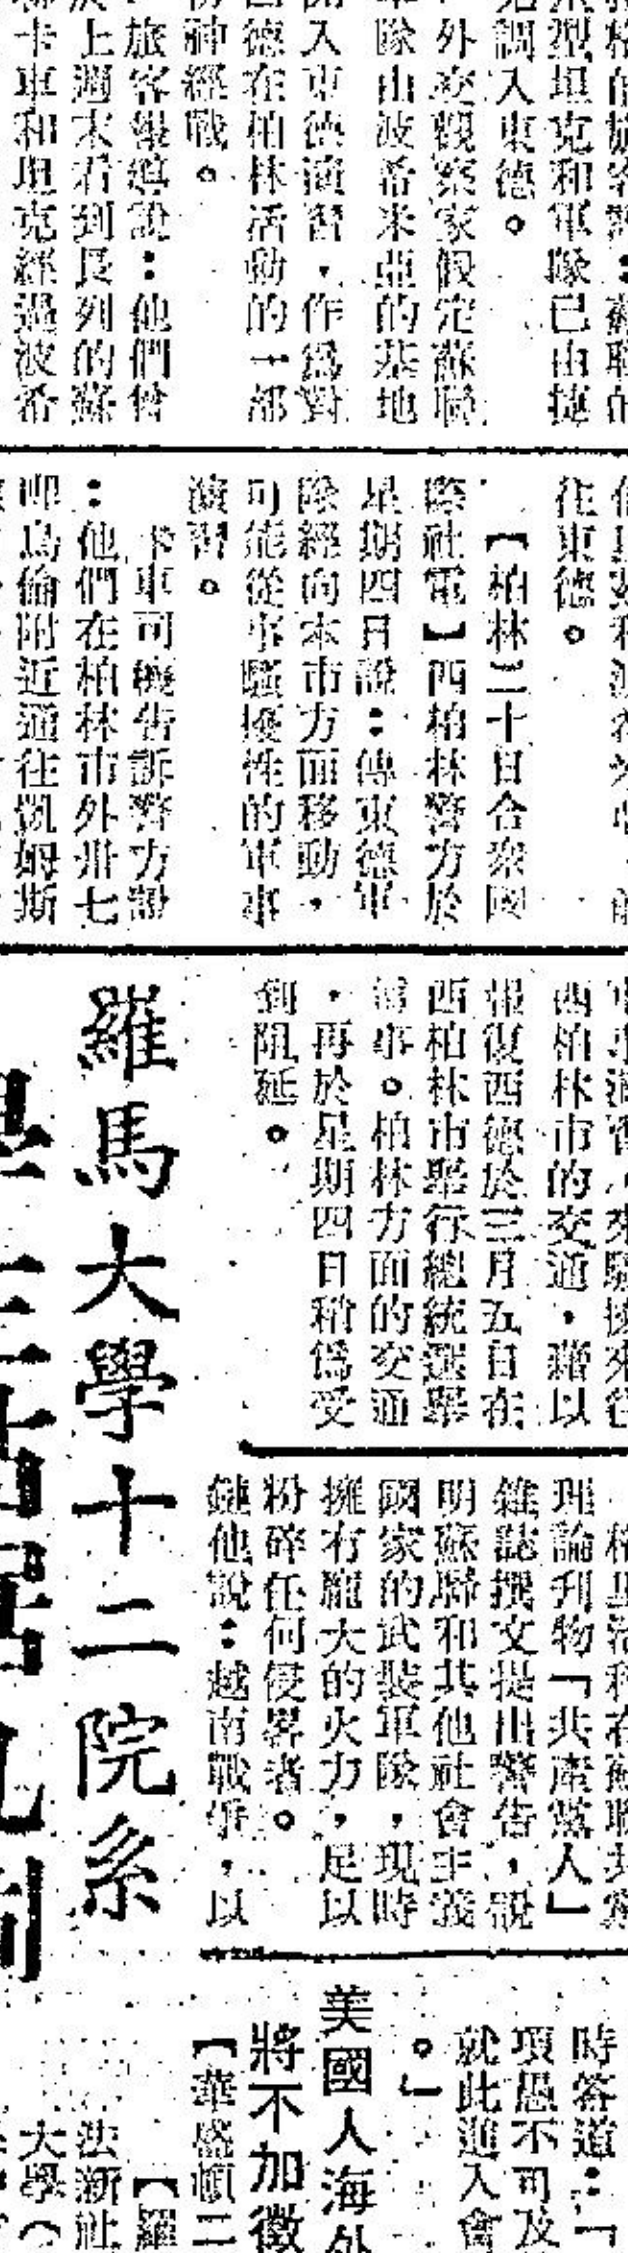 型坦克和軍隊已由捷
克調入東德。
外交觀察家假定蘇聯
軍隊由波希米亞的基地
開入東德演習，作爲對
西德在柏林活動的一部
份神經戰。
旅客報導說：他們曾
於上週末看到長列的蘇
聯卡車和坦克經過波希
往東德。
【柏林二十日合衆國
際社電】西柏林警方於
星期四日說：傳東德軍
隊經向本市方面移動，
可能從事騷擾性的軍事
演習。
卡車司機告訴警方說
：他們在柏林市外卅七
哩烏倫附近通往凱姆斯
西柏林市的交通，藉以
報復西德於三月五日在
西柏林市舉行總統選舉
事。柏林方面的交通
，再於星期四日稍爲受
到阻延。
理論刊物「共產黨人」
雜誌撰文提出警告，說
明蘇聯和其他社會主義
國家的武裝軍隊，現時
擁有龐大的火力，足以
粉碎任何侵畧者。
他說：越南戰爭，以
時答道：「
項愚不可及
就此進入會
。」
美國人海外
將不加徵
【華盛頓二
羅馬大學十二院系
【羅
法新社
大學（